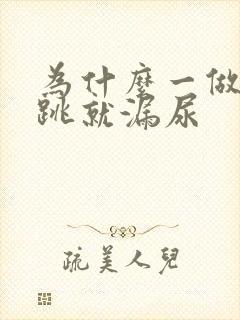 为什麽一做
跳就漏尿
疏美人兒